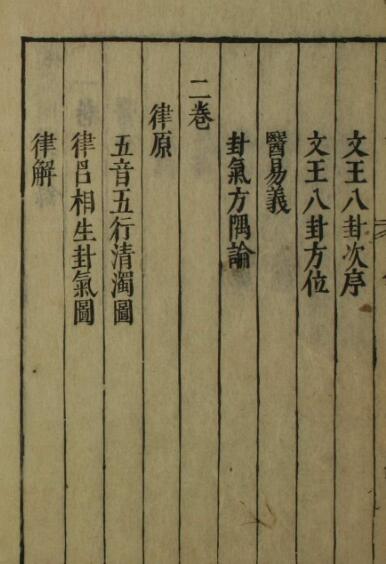 文王八卦次序
文王八卦方位
醫易義
卦氣方隅論
二卷
律原
五音五行清濁圖
律呂相生卦氣圖
律解